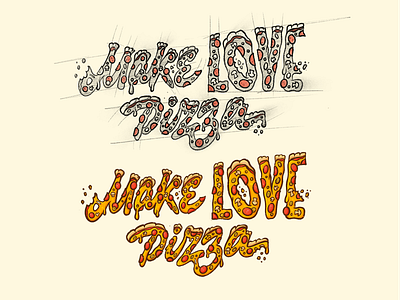 Make LOVE
Pizza
Make LOVE
Pizza